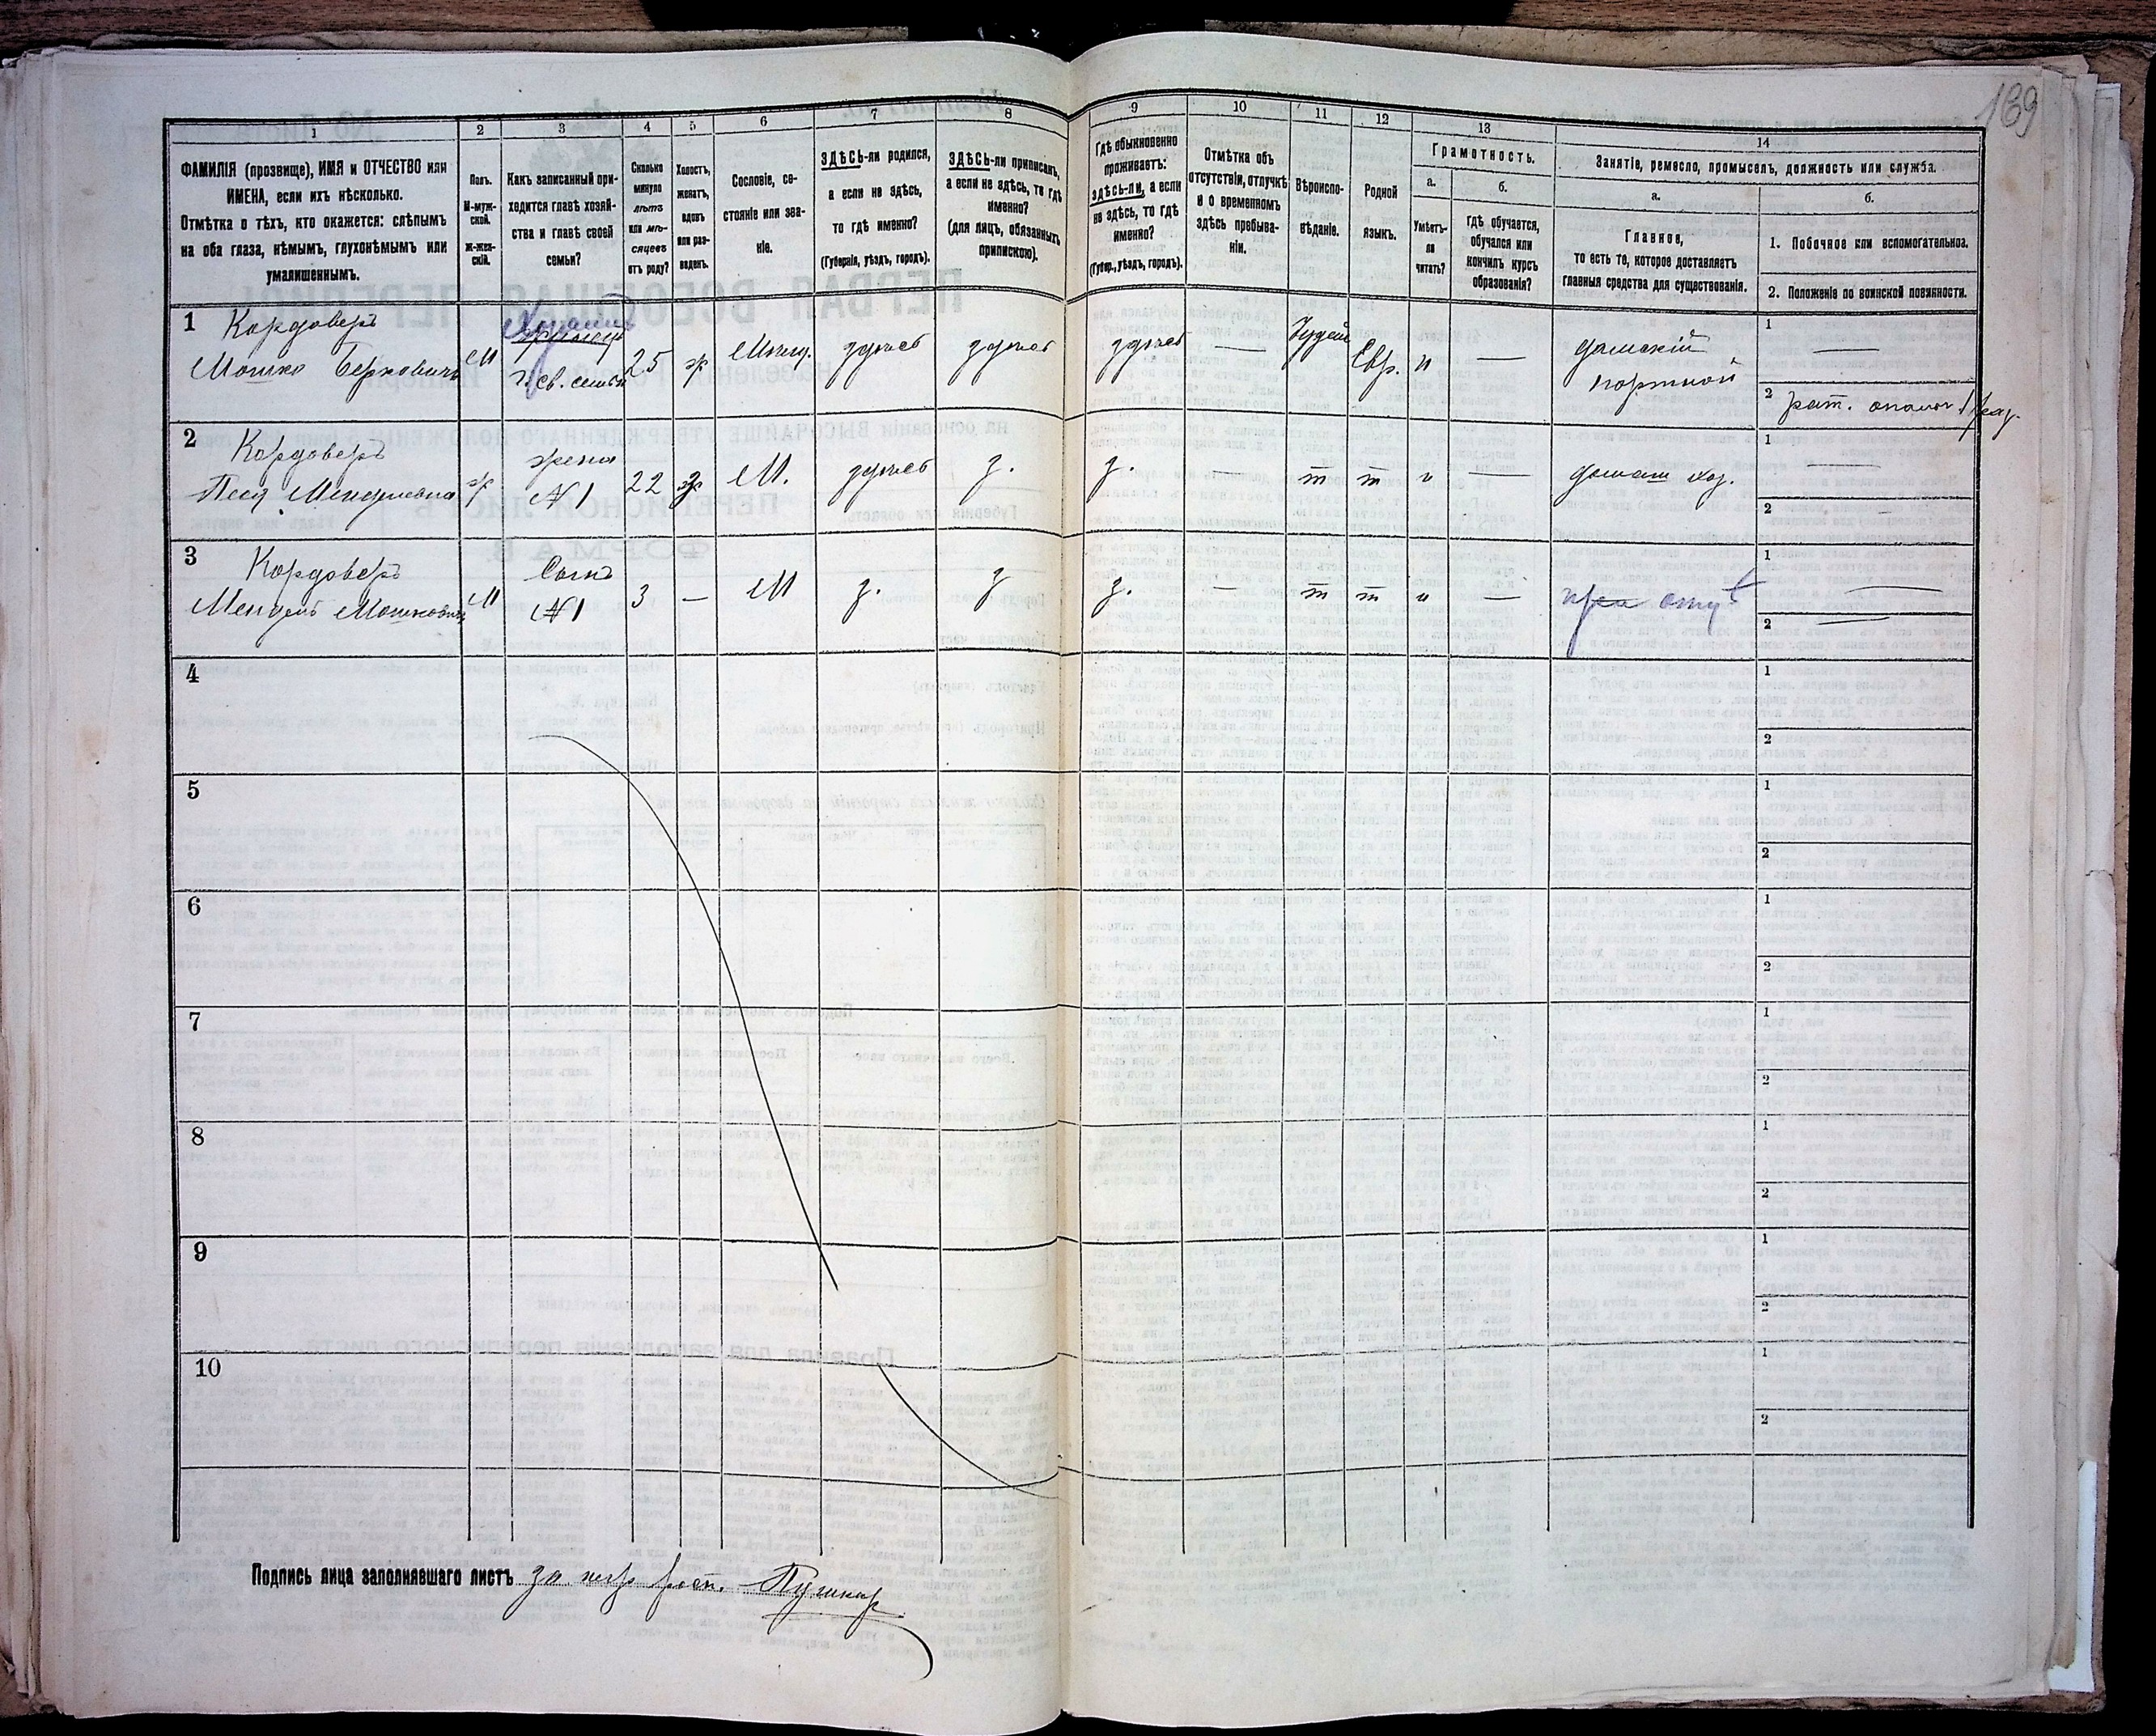 189
1 2 3 4 5 6 7 8 9 10 11 12 13 14
ФАМИЛІЯ (прозвище), ИМЯ и ОТЧЕСТВО или
ИМЕНА, если ихъ нѣсколько.
Отмѣтка о тѣхъ, кто окажется: слѣпымъ
на оба глаза, нѣмымъ, глухонѣмымъ или
умалишеннымъ.
Полъ.
М-муж-
ской.
Ж-жен-
скій.
Какъ записанный при-
ходится главѣ хозяй-
ства и главѣ своей
семьи?
Сколько
минуло
лѣтъ
или мѣ-
сяцевъ
отъ роду?
Холостъ,
женатъ,
вдовъ
или раз-
веденъ.
Сословіе, со-
стояніе или зва-
ніе.
ЗДѢСЬ-ли родился,
а если не здѣсь,
то гдѣ именно?
(Губернія, уѣздъ, городъ).
ЗДѢСЬ-ли приписанъ,
а если не здѣсь, то гдѣ
именно?
(для лицъ, обязанныхъ
припискою).
Гдѣ обыкновенно
проживаетъ:
здѣсь-ли, а если
не здѣсь, то гдѣ
именно?
(Губер., уѣздъ, городъ).
Отмѣтка объ
отсутствіи, отлучкѣ
и о временномъ
здѣсь пребыва-
ніи.
Вѣроиспо-
вѣданіе.
Родной
языкъ.
Грамотность.
а.
Умѣетъ-
ли
читать?
б.
Гдѣ обучается,
обучался или
кончилъ курсъ
образованія?
Занятіе, ремесло, промыселъ, должность или служба.
а.
Главное,
то есть то, которое доставляетъ
главныя средства для существованія.
б.
1. Побочное или вспомогательное.
2. Положеніе по воинской повинности.
1 Кордоверъ
Мошко Берковичъ М Хозяинъ 25 ж Мѣщ. здѣсь здѣсь здѣсь — Іудей Евр. н — дамскій
портной
1 —
2 рат. ополч. 1 раз.
2 Кордоверъ
Песя Менделевна ж жена
№1 22 з М. здѣсь з. з. — т т н — домаш хоз.
1 —
2 —
3 Кордоверъ
Мендель Мошковичъ М Сынъ
№1 3 — М з. з з. — т т н — при отцѣ
1 —
2 —
4 1
2
5 1
2
6 1
2
7 1
2
8 1
2
9 1
2
10 1
2
Подпись лица заполнявшаго листъ за негр. Пушкар